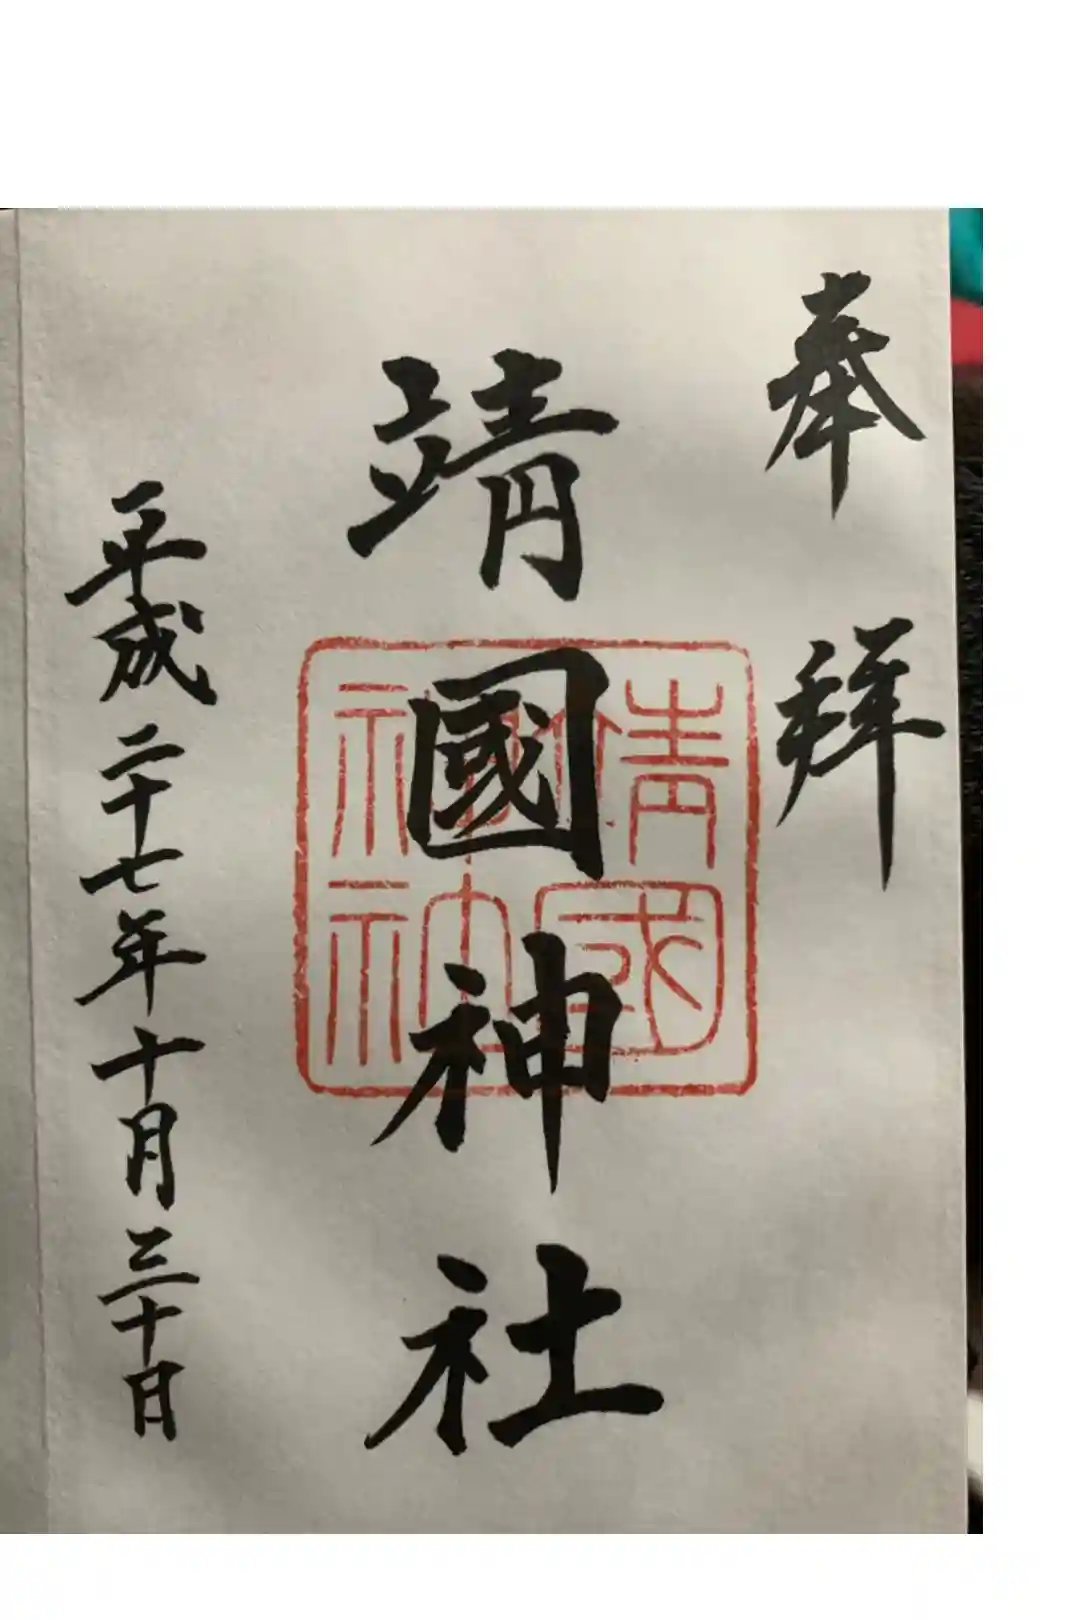 奉拝
靖國神社
靖國神社
平成二十七年十月三十日